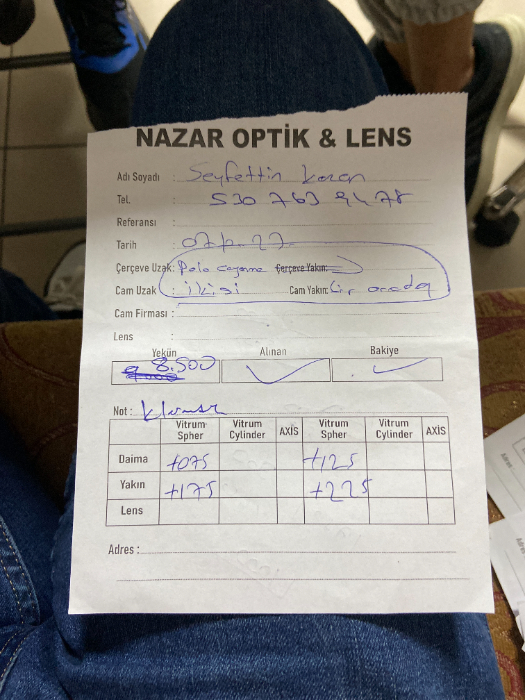 NAZAR OPTİK & LENS
Adı Soyadı : Seyfettin
Tel. : 530 763 94 78
Referansı :
Tarih :
Çerçeve Uzak: Polo Çerçeve Yakın:
Cam Uzak : ikisi Cam Yakın: bir arada
Cam Firması :
Lens :
Yekün Alınan Bakiye
8.500
Not :
Vitrum Spher Vitrum Cylinder AXİS Vitrum Spher Vitrum Cylinder AXİS
Daima +075 +125
Yakın +175 +225
Lens
Adres :